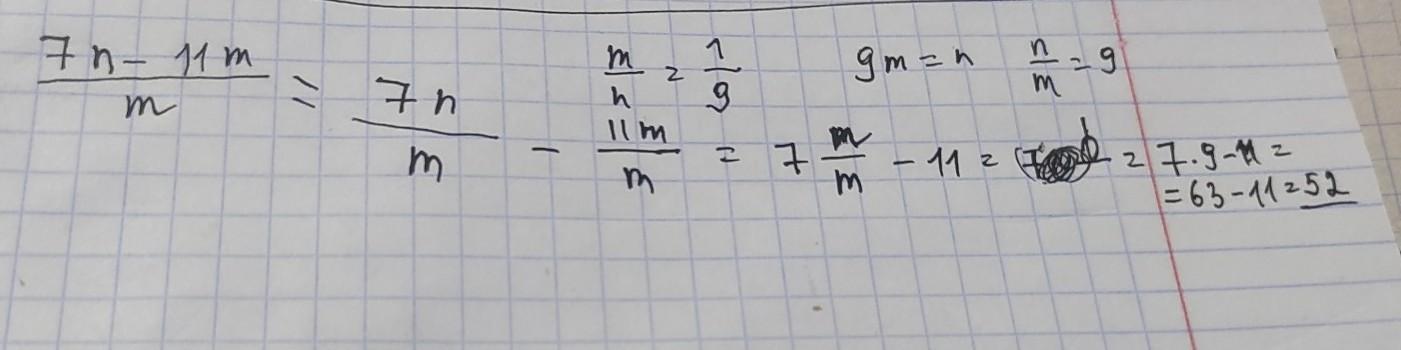 (7n - 11m)/m = 7n/m - 11m/m = 7 m/m - 11 = = 7·9-11 =
= 63 - 11 = 52
m/n = 1/9 9m = n n/m = 9